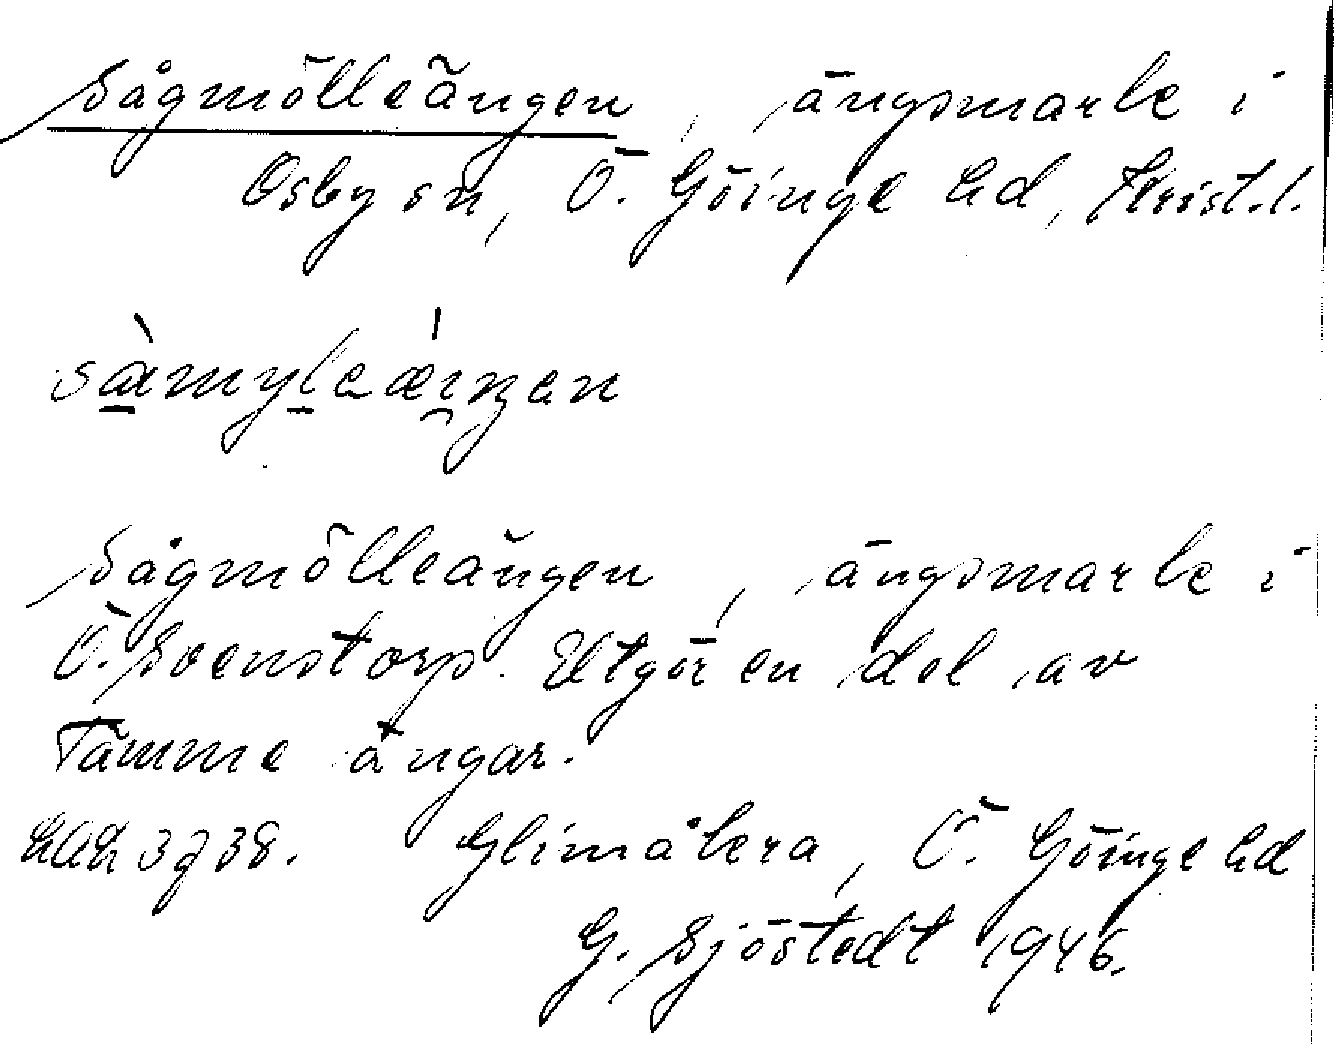 Sågmölleängen, ängsmark i
Osby sn, Ö. Göinge hd, Krist. l.
Sågmölleängen, ängsmark i
Ö. Svenstorp. Utgör en del av
Tämme ängar.
3738. Glimåkra, Ö. Göinge hd
G. Sjöstedt 1946.